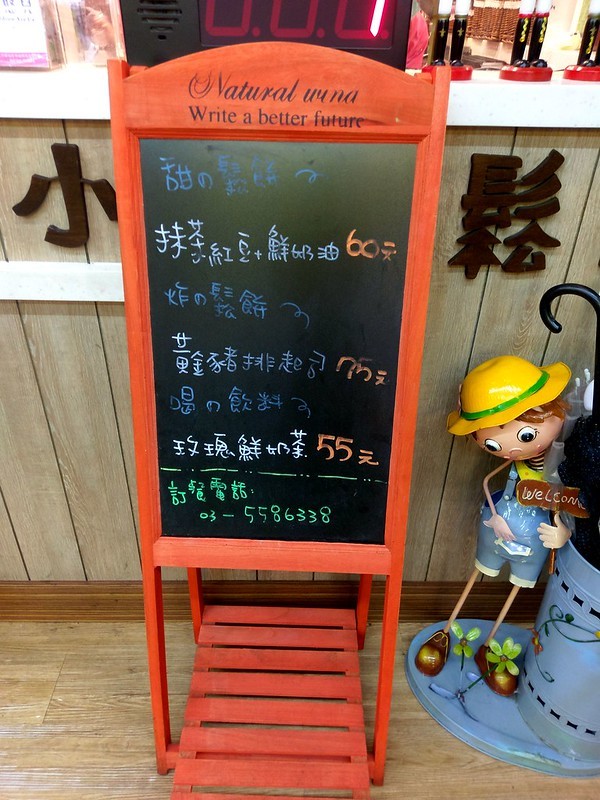 Natural wind
Write a better future
小
鬆
甜の鬆餅
抹茶紅豆+鮮奶油 60元
炸の鬆餅
黃金豬排起司 75元
喝の飲料
玫瑰鮮奶茶 55元
訂餐電話:
03-5586338
WELCOME